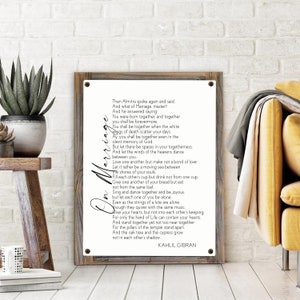 On Marriage
Then Almitra spoke again and said
And what of Marriage, master?
And he answered saying:
You were born together, and together
you shall be forevermore.
You shall be together when the white
wings of death scatter your days
Ay, you shall be together even in the
silent memory of God.
But let there be spaces in your togetherness,
And let the winds of the heavens dance
between you.
Love one another but make not a bond of love:
Let it rather be a moving sea between
the shores of your souls.
Fill each other's cup but drink not from one cup.
Give one another of your bread but eat
not from the same loaf.
Sing and dance together and be joyous,
but let each one of you be alone
Even as the strings of a lute are alone
though they quiver with the same music.
Give your hearts, but not into each other's keeping.
For only the hand of Life can contain your hearts.
And stand together yet not too near together:
For the pillars of the temple stand apart,
And the oak tree and the cypress grow
not in each other's shadow.
KAHLIL GIBRAN